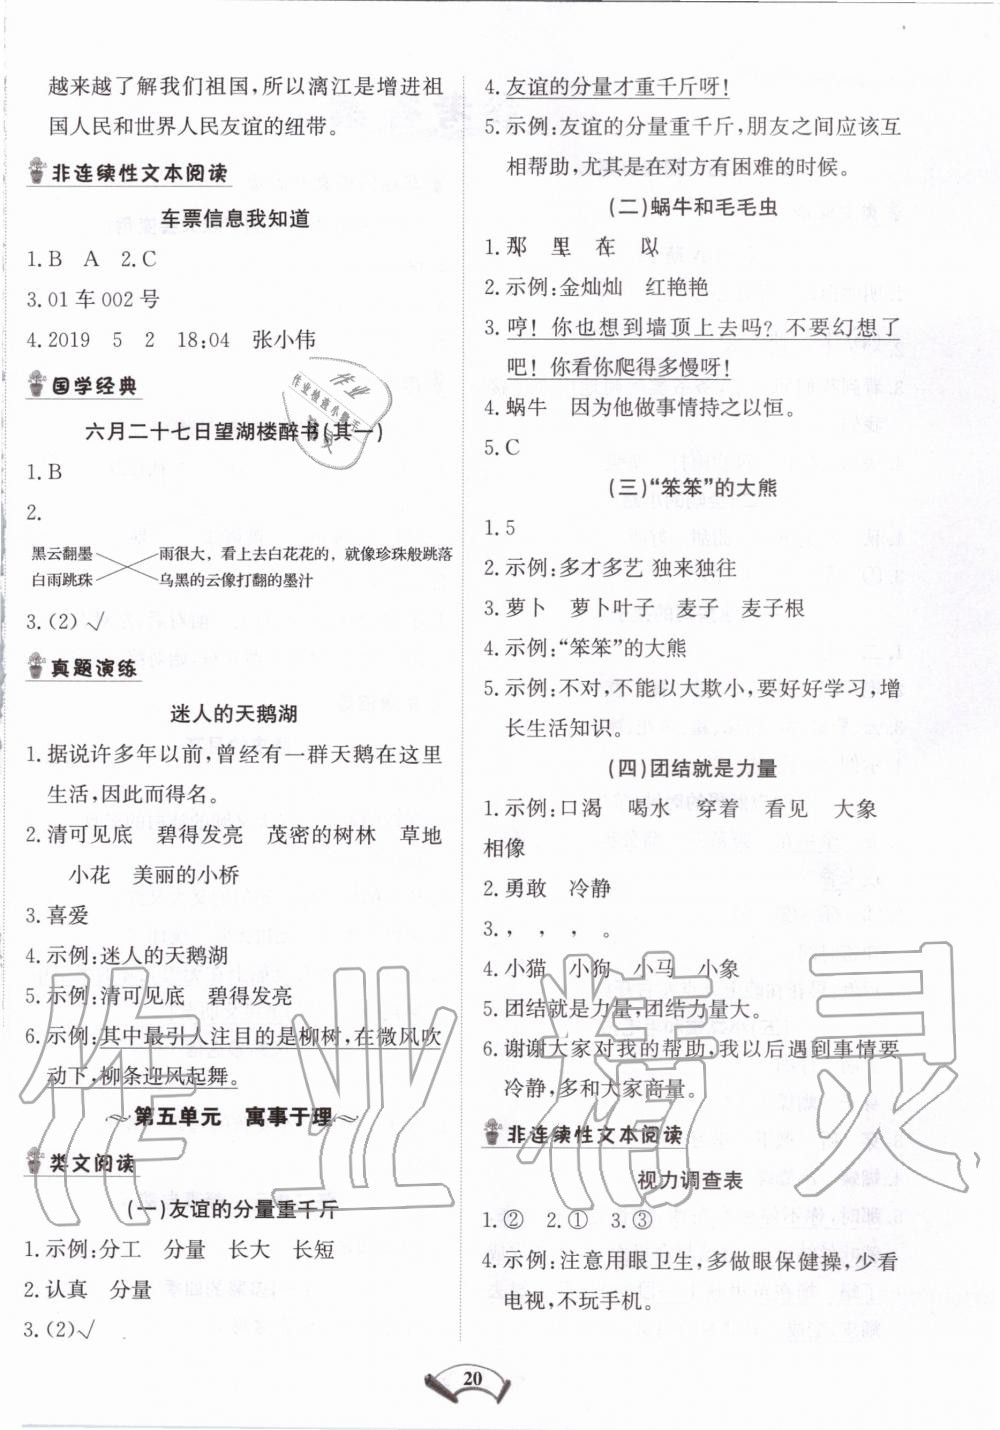 越来越了解我们祖国，所以漓江是增进祖
国人民和世界人民友谊的纽带。
非连续性文本阅读
车票信息我知道
1. B A 2. C
3. 01 车 002 号
4. 2019 5 2 18:04 张小伟
国学经典
六月二十七日望湖楼醉书(其一)
1. B
2.
黑云翻墨 雨很大，看上去白花花的，就像珍珠般跳落
白雨跳珠 乌黑的云像打翻的墨汁
3. (2) √
真题演练
迷人的天鹅湖
1. 据说许多年以前，曾经有一群天鹅在这里
生活，因此而得名。
2. 清可见底 碧得发亮 茂密的树林 草地
小花 美丽的小桥
3. 喜爱
4. 示例：迷人的天鹅湖
5. 示例：清可见底 碧得发亮
6. 示例：其中最引人注目的是柳树，在微风吹
动下，柳条迎风起舞。
～第五单元 寓事于理～
类文阅读
(一)友谊的分量重千斤
1. 示例：分工 分量 长大 长短
2. 认真 分量
3. (2)√
4. 友谊的分量才重千斤呀！
5. 示例：友谊的分量重千斤，朋友之间应该互
相帮助，尤其是在对方有困难的时候。
(二)蜗牛和毛毛虫
1. 那 里 在 以
2. 示例：金灿灿 红艳艳
3. 哼！你也想到墙顶上去吗？不要幻想了
吧！你看你爬得多慢呀！
4. 蜗牛 因为他做事情持之以恒。
5. C
(三)“笨笨”的大熊
1. 5
2. 示例：多才多艺 独来独往
3. 萝卜 萝卜叶子 麦子 麦子根
4. 示例：“笨笨”的大熊
5. 示例：不对，不能以大欺小，要好好学习，增
长生活知识。
(四)团结就是力量
1. 示例：口渴 喝水 穿着 看见 大象
相像
2. 勇敢 冷静
3. ， ， ， 。
4. 小猫 小狗 小马 小象
5. 团结就是力量，团结力量大。
6. 谢谢大家对我的帮助，我以后遇到事情要
冷静，多和大家商量。
非连续性文本阅读
视力调查表
1. ② 2. ① 3. ③
4. 示例：注意用眼卫生，多做眼保健操，少看
电视，不玩手机。
20
作业
作业检查小助手
精灵
作业精灵